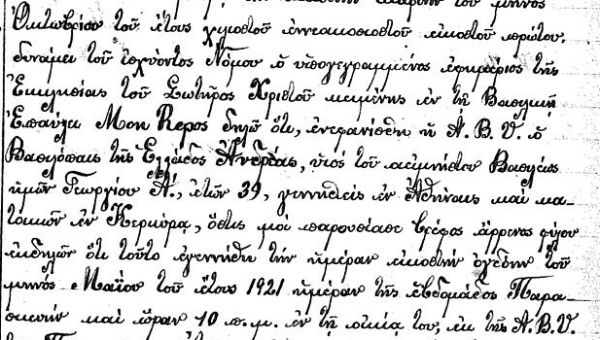 Ὀκτωβρίου τοῦ ἔτους χιλιοστοῦ ἐννεακοσιοστοῦ εἰκοστοῦ πρώτου,
δυνάμει τοῦ ἰσχύοντος Νόμου ὁ ὑπογεγραμμένος ἐφημέριος τῆς
Ἐκκλησίας τοῦ Σωτῆρος Χριστοῦ κειμένης ἐν τῇ Βασιλικῇ
Ἐπαύλει Mon Repos δηλῶ ὅτι, ἐνεφανίσθη ἡ Α. Β. Υ. ὁ
Βασιλόπαις τῆς Ἑλλάδος Ἀνδρέας, υἱὸς τοῦ ἀειμνήστου Βασιλέως
ἡμῶν Γεωργίου Α΄., ἐτῶν 39, γεννηθεὶς ἐν Ἀθήναις καὶ κα-
τοικῶν ἐν Κερκύρᾳ, ὅστις μοὶ παρουσίασε βρέφος ἄρρενος φύλου
ἐκδηλῶν ὅτι τοῦτο ἐγεννήθη τὴν ἡμέραν εἰκοστὴν ὀγδόην τοῦ
μηνὸς Μαΐου τοῦ ἔτους 1921 ἡμέραν τῆς ἑβδομάδος Παρα-
σκευὴν καὶ ὥραν 10 π. μ. ἐν τῇ οἰκίᾳ του, ἐκ τῆς Α. Β. Υ.